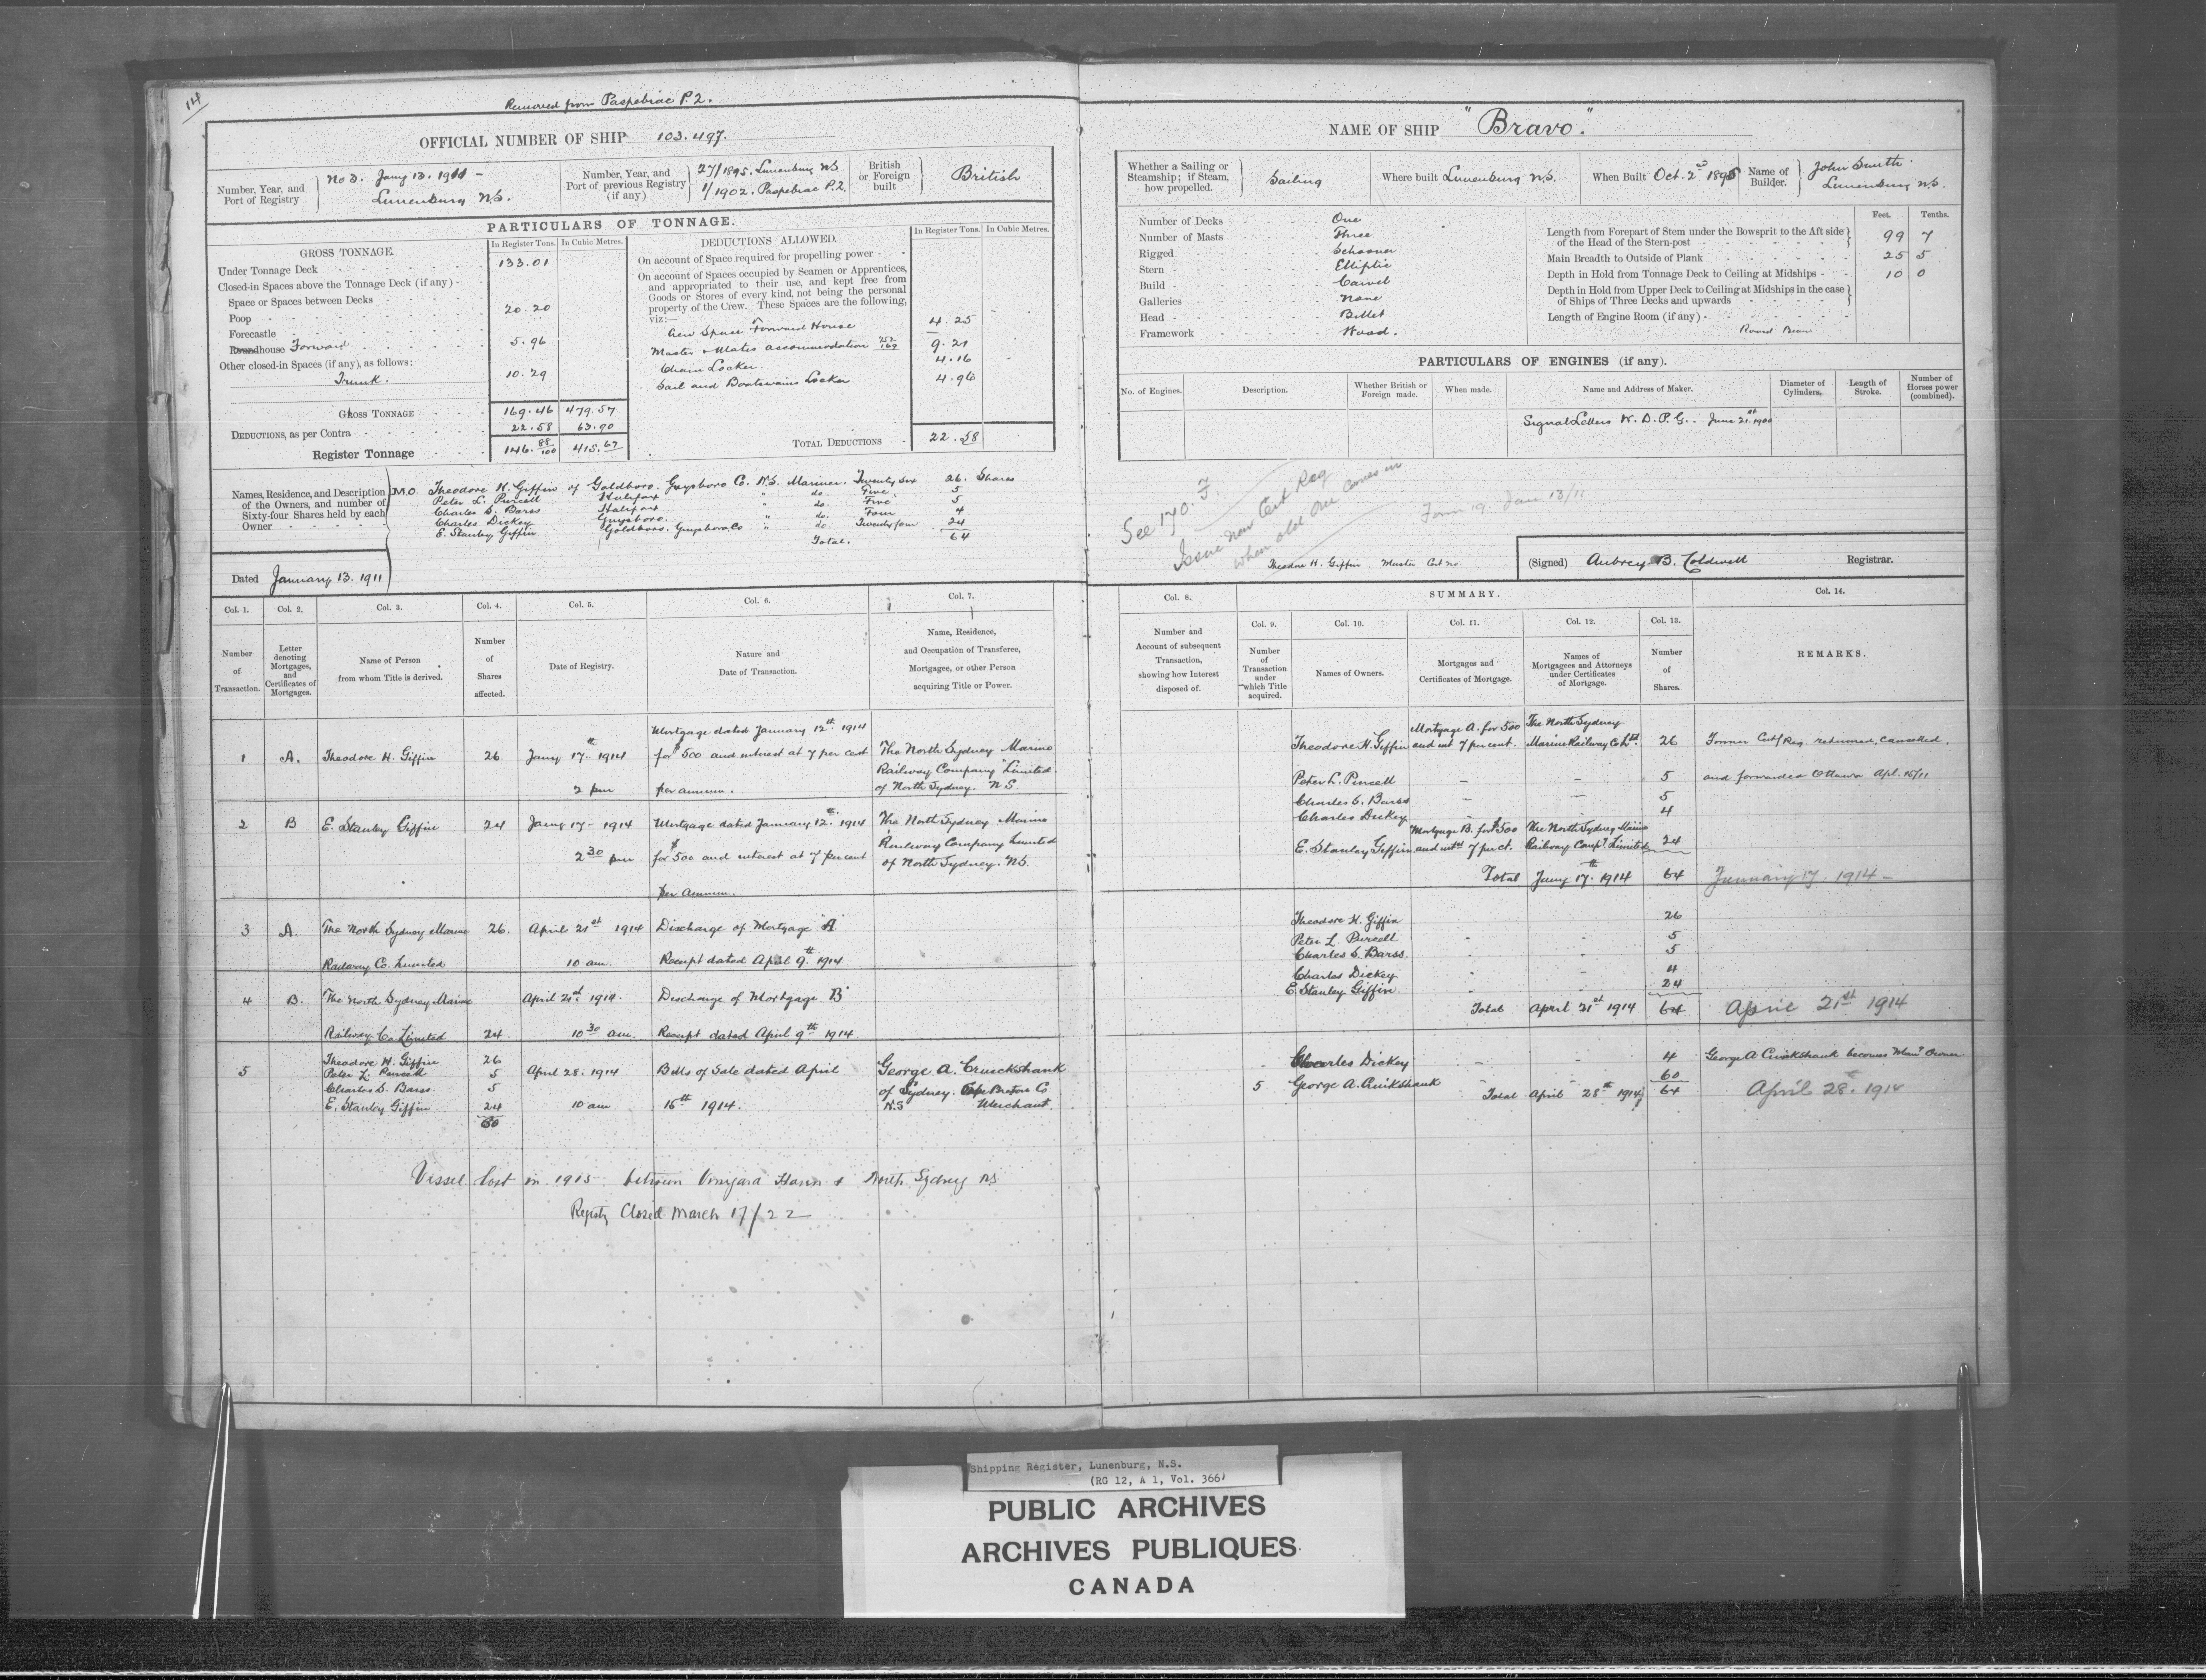 14
Removed from Paspebiac P.2.
OFFICIAL NUMBER OF SHIP 103.497.
Number, Year, and Port of Registry } No 3. Jany 13. 1911 - Lunenburg N.S.
Number, Year, and Port of previous Registry (if any) } 27/1895. Lunenburg NS 1/1902. Paspebiac P.2.
British or Foreign built } British
PARTICULARS OF TONNAGE.
GROSS TONNAGE. In Register Tons. In Cubic Metres.
Under Tonnage Deck 133.01
Closed-in Spaces above the Tonnage Deck (if any)
Space or Spaces between Decks
Poop 20.20
Forecastle
Roundhouse Forward 5.96
Other closed-in Spaces (if any), as follows:
Trunk. 10.29
GROSS TONNAGE 169.46 479.57
DEDUCTIONS, as per Contra 22.58 63.90
Register Tonnage 146.88/100 415.67
DEDUCTIONS ALLOWED. In Register Tons. In Cubic Metres.
On account of Space required for propelling power
On account of Spaces occupied by Seamen or Apprentices,
and appropriated to their use, and kept free from
Goods or Stores of every kind, not being the personal
property of the Crew. These Spaces are the following,
viz:—
Crew Space Forward House 4.25
Master & Mates accommodation 9.21
Chain Locker. 4.16
Sail and Boatswains Locker 4.96
TOTAL DEDUCTIONS 22.58
Names, Residence, and Description of the Owners, and number of Sixty-four Shares held by each Owner
M.O. Theodore H. Giffin of Goldboro. Guysboro Co. N.S. Mariner. Twenty six 26. Shares
Peter L. Purcell Halifax " do. Five. 5
Charles S. Barss Halifax " do. Five 5
Charles Dickey Guysboro. " do. Four 4
E. Stanley Giffin Goldboro. Guysboro Co " do Twenty four 24
Total. 64
Dated January 13. 1911
NAME OF SHIP "Bravo".
Whether a Sailing or Steamship; if Steam, how propelled. } Sailing
Where built Lunenburg N.S.
When Built Oct. 2nd 1895
Name of Builder. } John Smith Lunenburg N.S.
Number of Decks One
Number of Masts Three
Rigged Schooner
Stern Elliptic
Build Carvel
Galleries None
Head Billet
Framework Wood.
Feet. Tenths.
Length from Forepart of Stem under the Bowsprit to the Aft side of the Head of the Stern-post 99 7
Main Breadth to Outside of Plank 25 5
Depth in Hold from Tonnage Deck to Ceiling at Midships 10 0
Depth in Hold from Upper Deck to Ceiling at Midships in the case of Ships of Three Decks and upwards
Length of Engine Room (if any)
Round Beam
PARTICULARS OF ENGINES (if any).
No. of Engines. Description. Whether British or Foreign made. When made. Name and Address of Maker. Diameter of Cylinders. Length of Stroke. Number of Horses power (combined).
Signal Letters W.D.P.G. June 21st 1900
See 170.
Issue new Cert Reg
when old one comes in
Form 19. Jan 13/11
Theodore H. Giffin Master Cert no.
(Signed) Aubrey B. Coldwell Registrar.
Col. 1. Col. 2. Col. 3. Col. 4. Col. 5. Col. 6. Col. 7.
Number of Transaction.
Letter denoting Mortgages, and Certificates of Mortgages.
Name of Person from whom Title is derived.
Number of Shares affected.
Date of Registry.
Nature and Date of Transaction.
Name, Residence, and Occupation of Transferee, Mortgagee, or other Person acquiring Title or Power.
1 A. Theodore H. Giffin 26 Jany 17th 1914 2 pm Mortgage dated January 12th 1914 for $500 and interest at 7 per cent per annum. The North Sydney Marine Railway Company Limited. of North Sydney. N.S.
2 B E. Stanley Giffin 24 Jany 17- 1914 2 30 pm Mortgage dated January 12th 1914 for $500 and interest at 7 per cent per annum. The North Sydney Marine Railway Company Limited of North Sydney. NS.
3 A. The North Sydney Marine Railway Co. Limited 26. April 21st 1914 10 am. Discharge of Mortgage "A" Receipt dated April 9th 1914
4 B. The North Sydney Marine Railway Co Limited 24. April 21st 1914. 10 30 am. Discharge of Mortgage B Receipt dated April 9th 1914
5 Theodore H. Giffin 26
Peter L. Purcell 5
Charles S. Barss 5
E. Stanley Giffin 24
60
April 28. 1914 10 am Bills of Sale dated April 16th 1914. George A. Cruickshank of Sydney. Cape Breton Co N.S Merchant.
Vessel lost in 1915 between Vineyard Haven & North Sydney NS
Registry Closed March 17/22
Col. 8. SUMMARY. Col. 14.
Col. 9. Col. 10. Col. 11. Col. 12. Col. 13.
Number and Account of subsequent Transaction, showing how Interest disposed of.
Number of Transaction under which Title acquired.
Names of Owners.
Mortgages and Certificates of Mortgage.
Names of Mortgagees and Attorneys under Certificates of Mortgage.
Number of Shares.
REMARKS.
Theodore H. Giffin Mortgage A. for 500 and int 7 per cent. The North Sydney Marine Railway Co Ltd. 26 Former Cert/Reg. returned, cancelled,
Peter L. Purcell - - 5 and forwarded Ottawa Apl. 15/11
Charles S. Barss - - 5
Charles Dickey 4
E. Stanley Giffin Mortgage B. for $500 and int 7 per ct. The North Sydney Marine Railway Compy. Limited 24
Total Jany 17th 1914 64 January 17. 1914 -
Theodore H. Giffin 26
Peter L. Purcell 5
Charles S. Barss. 5
Charles Dickey 4
E. Stanley Giffin 24
Total April 21st 1914 64 April 21st 1914
Charles Dickey 4 George A Cruikshank becomes Man'g Owner
5 George A. Cruikshank 60
Total April 28th 1914 64 April 28th. 1914
Shipping Register, Lunenburg, N.S.
(RG 12, A 1, Vol. 366)
PUBLIC ARCHIVES
ARCHIVES PUBLIQUES
CANADA